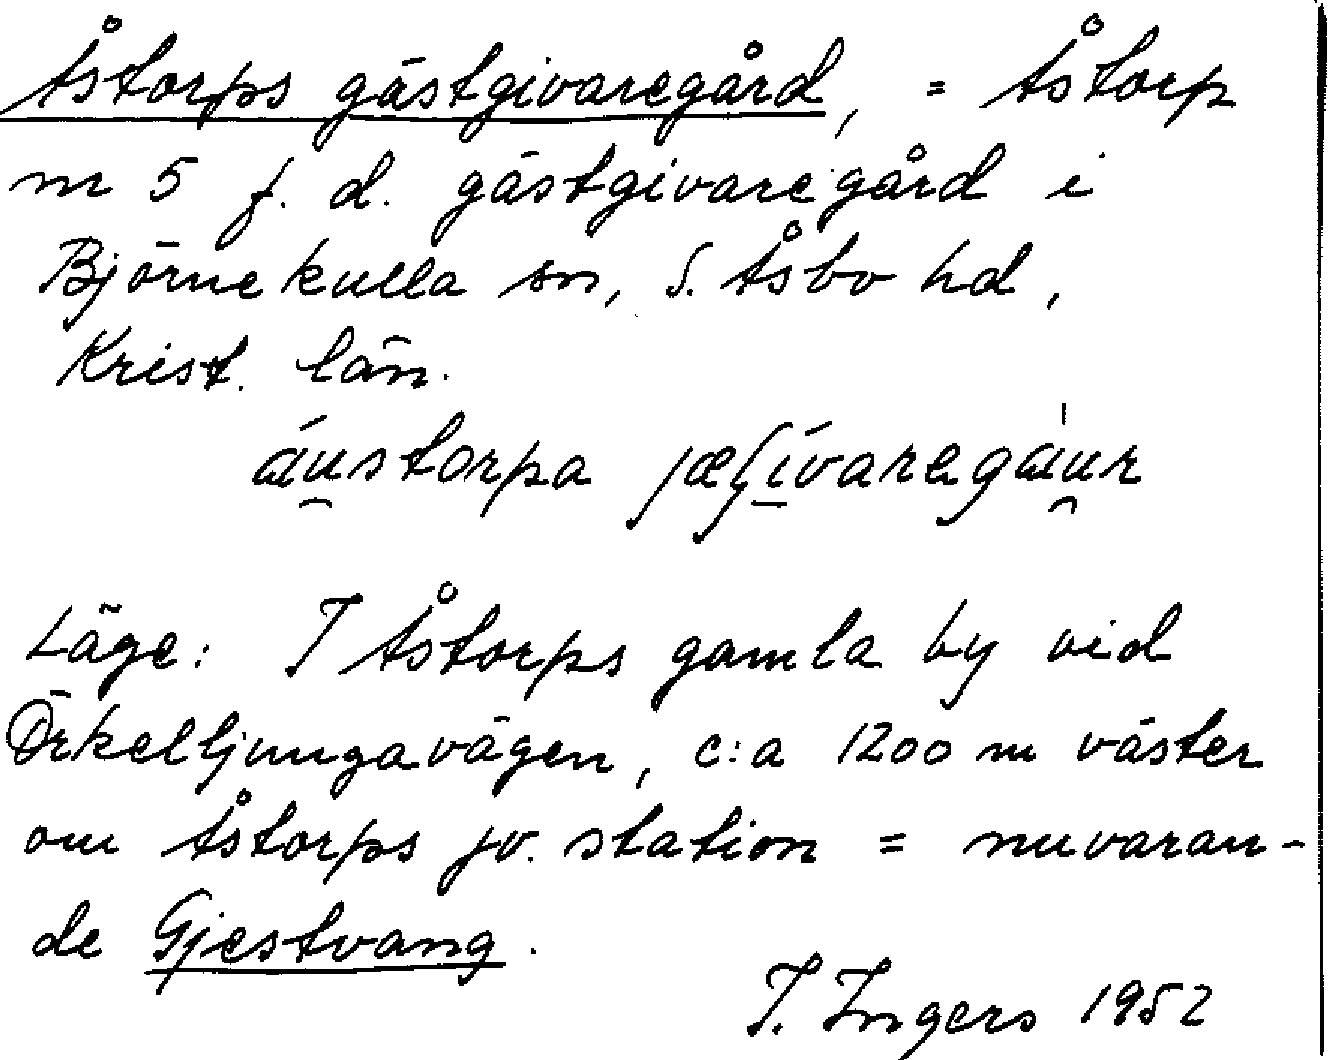 Åstorps gästgivaregård, = Åstorp
nr 5 f. d. gästgivaregård i
Björnekulla sn, S. Åsbo hd,
Krist. län.
áu̯storpa jæʃívaregáu̯r
Läge: I Åstorps gamla by vid
Örkelljungavägen, c:a 1200 m väster
om Åstorps jv. station = nuvaran-
de Gjestvang.
I. Ingers 1952